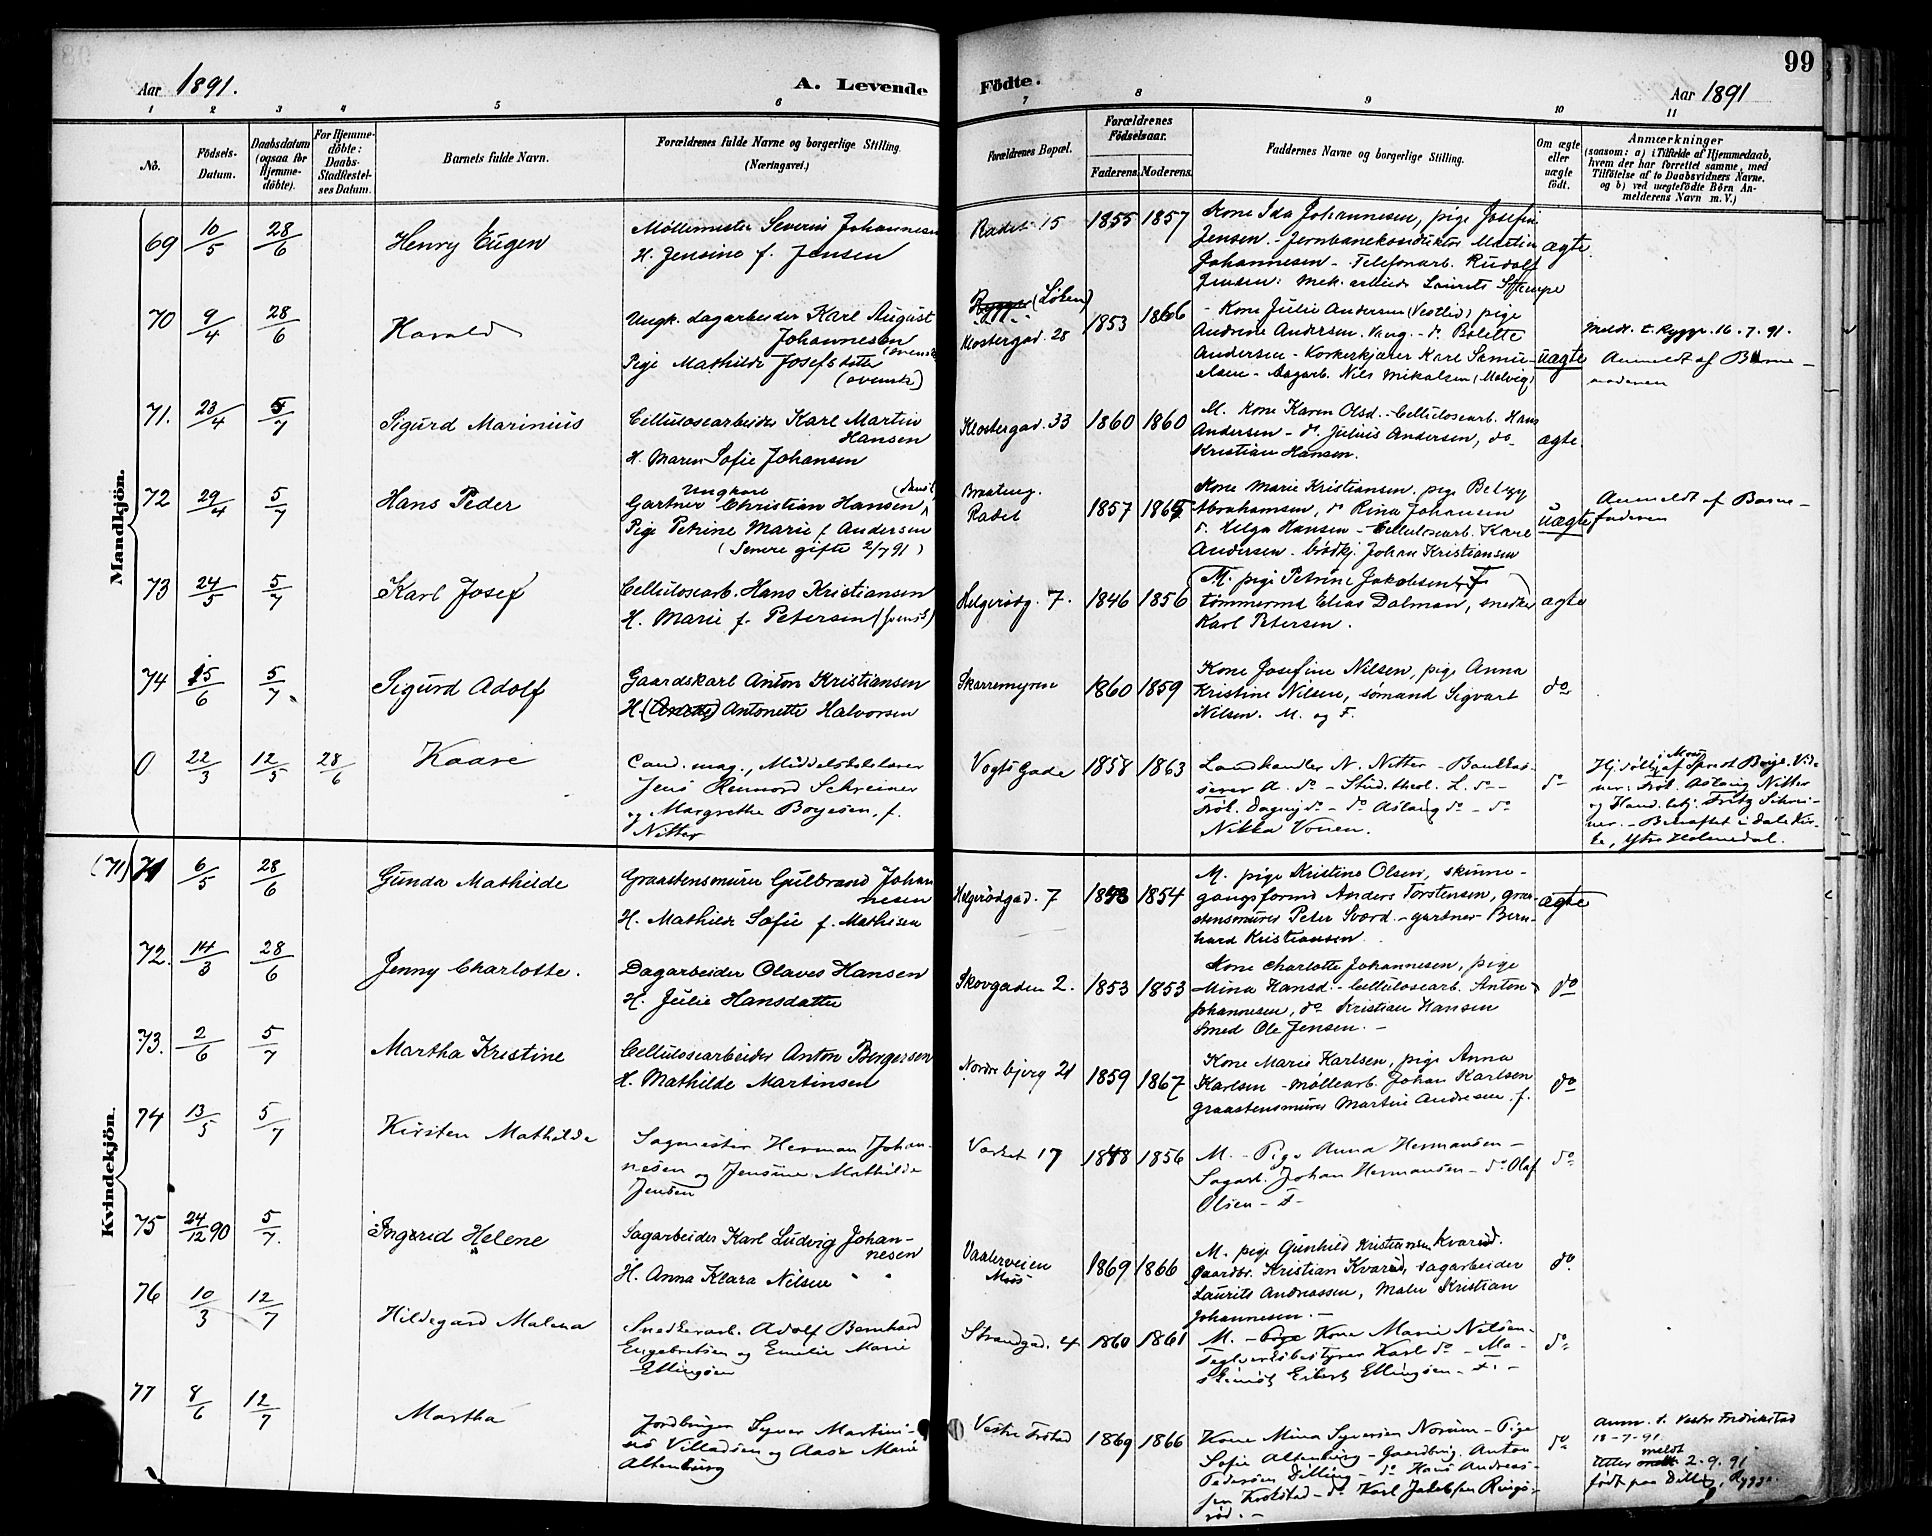 99
Aar 1891.
A. Levende
Födte.
Aar 1891
1 2 3 4 5 6 7 8 9 10 11
No.
Födsels-
Datum.
Daabsdatum
(ogsaa för
Hjemme-
döbte).
For Hjemme-
döbte:
Daabs-
Stadfæstel-
ses Datum.
Barnets fulde Navn.
Forældrenes fulde Navne og borgerlige Stilling.
(Næringsvei.)
Forældrenes Bopæl.
Forældrenes
Födselsaar.
Faderens. Moderens.
Faddernes Navne og borgerlige Stilling.
Om ægte
eller
uægte
født.
Anmærkninger
(saasom: a) i Tilfælde af Hjemmedaab,
hvem der har forrettet samme, med
Tilföielse af to Daabsvidners Navne.
og b) ved uægtefödte Börn An-
melderens Navn m. V.)
Mandkjön.
69 10/5 28/6 Henry Eugen
Møllemester Severin Johannesen
H. Jensine f. Jensen
Radet 15 1855 1857
Kone Ida Johannesen, pige Josefin
Jensen. - Jernbanekonduktør Martin
Johannesen - Telefonarb. Rudolf
Jensen. Mek. arbeid Laurits
ægte
70 9/4 28/6 Harald
Ungk. dagarbeider Karl August
Johannesen (svensk)
Pige Mathilde Josefsdatter
(svensk)
Rygge (Løken)
Klostergad. 28 1853 1866
- Kone Julie Andersen (Vestlid) pige
Andrine Andersen. Vang. - do Bolette
Andersen - Korkerkjører Karl Samu-
elsen - Dagarb. Nils Mikalsen (Molvig)
uægte
Meldt t. Rygge. 16.7.91.
Anmeldt af Barne-
moderen
71. 23/4 5/7 Sigurd Marinius
Cellulosearbeider Karl Martin
Hansen
H. Maren Sofie Johansen
Klostergad. 33 1860 1860
M. Kone Karen Olsd. - Cellulosearb. Hans
Andersen - do Julius Andersen, do
Kristian Hansen.
ægte
72 29/4 5/7 Hans Peder
Ungkarl (dansk)
Gartner Christian Hansen
Pige Petrine Marie f. Andersen
(Senere gifte 2/7 91)
Braateng.
Radet 1857 1865
Kone Marie Kristiansen. pige Betzy
Abrahamsen, do Rina Johansen
do Helga Hansen - Cellulosearb. Karl
Andersen. brødkj. Johan Kristiansen
uægte
Anmeldt af Barne-
faderen
73 24/5 5/7 Karl Josef
Cellulosearb. Hans Kristiansen
H. Marie f. Petersen (svensk)
Helgerødg. 7. 1846 1856
M. pige Petrine Jakobsen, F
tømmermd Elias Dalman, snedker
Karl Petersen.
ægte
74 15/6 5/7 Sigurd Adolf
Gaardskarl Anton Kristiansen
H. Antonette Halvorsen
Skarremyren 1860 1859
Kone Josefine Nilsen, pige Anna
Kristine Nilsen, sømand Sigvart
Nilsen. M. og F.
do
0 22/3 12/5 28/6 Kaare
Cand. mag., Middelskolelærer
Jens Schreiner
og Margrethe Boyesen, f.
Nitter
Vogts Gade 1858 1863
Landhandler N. Nitter - Bankkas-
serer A. do - Stud. theol. L. do -
Frøk. Dagny do - do Aslaug do - do
Nikka Vonen.
do
i Moss
Hj. døbt af Sprst Børge. Vid-
ner: Frøk. Aslaug Nitter
og Hand. betj. Fritz Schrei-
ner. - i Dale Kir-
ke, Ytre Holmedal.
Kvindekjön.
(71) 71 6/5 28/6 Gunda Mathilde
Graastensmurer Gulbrand Johan
nesen
H. Mathilde Sofie f. Mathisen
Helgerødgad. 7 1853 1854
M. pige Kristine Olsen, skinne-
gangsformd Anders Torstensen, graa-
stensmurer Peter Sværd. - gartner Bern-
hard Kristiansen.
ægte
72. 14/3 28/6 Jenny Charlotte.
Dagarbeider Olaves Hansen
H. Julie Hansdatter
Skovgaden 2. 1853 1853
Kone Charlotte Johannesen, pige
Mina Hansd. - Cellulosearb. Anton
Johannesen, do Kristian Hansen
Smed Ole Jensen. -
do
73. 2/6 5/7 Martha Kristine
Cellulosearbeider Anton Bergersen
H. Mathilde Martinsen
Nordre bjerg 21 1859 1867
Kone Marie Karlsen, pige Anna
Karlsen - møllearb. Johan Karlsen
graastensmurer Martin Andresen. f.
do
74 13/5 5/7 Kirsten Mathilde
Sagmester Herman Johan-
nesen og Jensine Mathilde
Jensen
Værket 17 1848 1856
M. - Pige Anna Hermansen -
Sagarb. Johan Hermansen - do Olaf
Olsen - F-
do
75 24/12 90 5/7 Ingerid Helene
Sagarbeider Karl Ludvig Johan-
nesen
H. Anna Klara Nilsen
Vaalerveien
Moss 1869 1866
M. pige Gunhild Kristiansen Kvarød.
gaardbr. Kristian Kvarød, sagarbeider
Laurits Andreassen, Maler Kristian
Johannesen. -
do.
76 10/3 12/7 Hildegard Malena
Snedkerarb. Adolf Bernhard
Engebretsen og Emilie Marie
Ellingsen
Strandgad. 4 1860 1861
M. - Pige Kone Marie Nilsen -
Teglverksbestyrer Karl do - Ma-
skinist Eibert Ellingsen - F. -
do
77 8/6 12/7 Martha
Jordbruger Syver Martini-
sen Villadsen og Aase Marie
Altenburg
Vestre Frestad 1869 1866
Kone Mina Syversen Norum - Pige
Sofie Altenburg - Gaardbrug. Anton
Pedersen Dilling - do Hans Andreas-
sen Krokstad - do Karl Jakobsen Rings-
rød. -
do
Anm. t. Vestre Fredrikstad
18-7-91.
Atter meldt 2.9.91
født paa Dilling, Rygge.